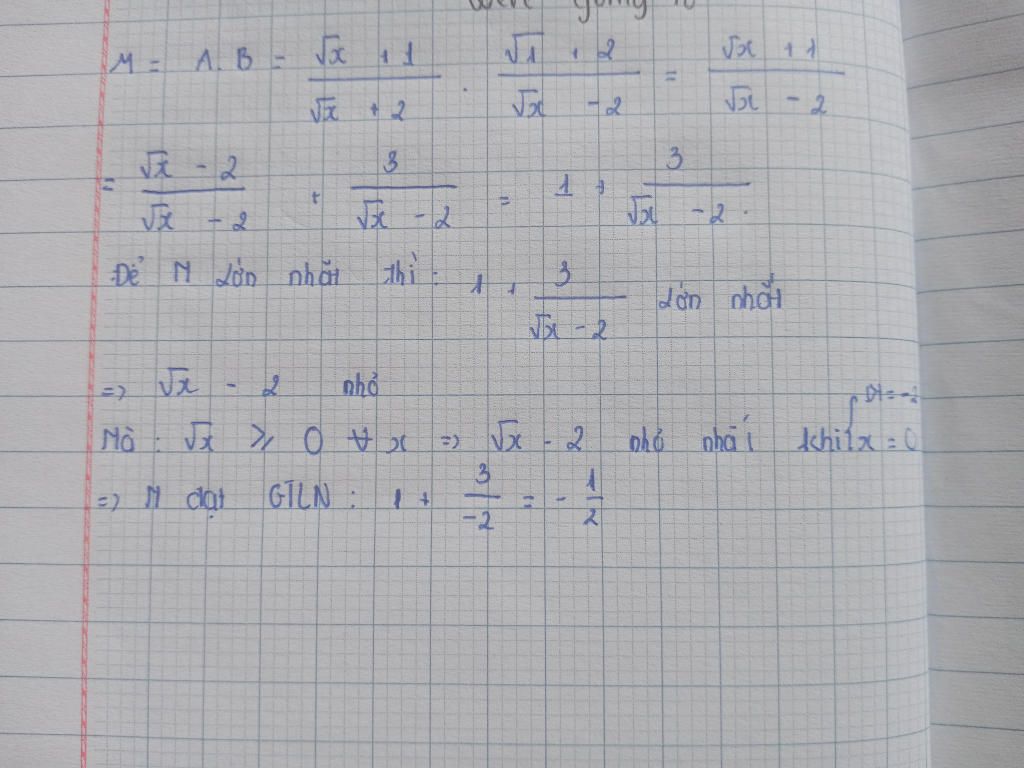 going to
M = A.B = \frac{\sqrt{x} + 1}{\sqrt{x} + 2} . \frac{\sqrt{1} + 2}{\sqrt{x} - 2} = \frac{\sqrt{x} + 1}{\sqrt{x} - 2}
= \frac{\sqrt{x} - 2}{\sqrt{x} - 2} + \frac{3}{\sqrt{x} - 2} = 1 + \frac{3}{\sqrt{x} - 2}.
Để M lớn nhất thì: 1 + \frac{3}{\sqrt{x} - 2} lớn nhất
=> \sqrt{x} - 2 nhỏ
Mà: \sqrt{x} ≥ 0 ∀ x => \sqrt{x} - 2 nhỏ nhất khi x = 0
=> M đạt GTLN: 1 + \frac{3}{-2} = -\frac{1}{2}